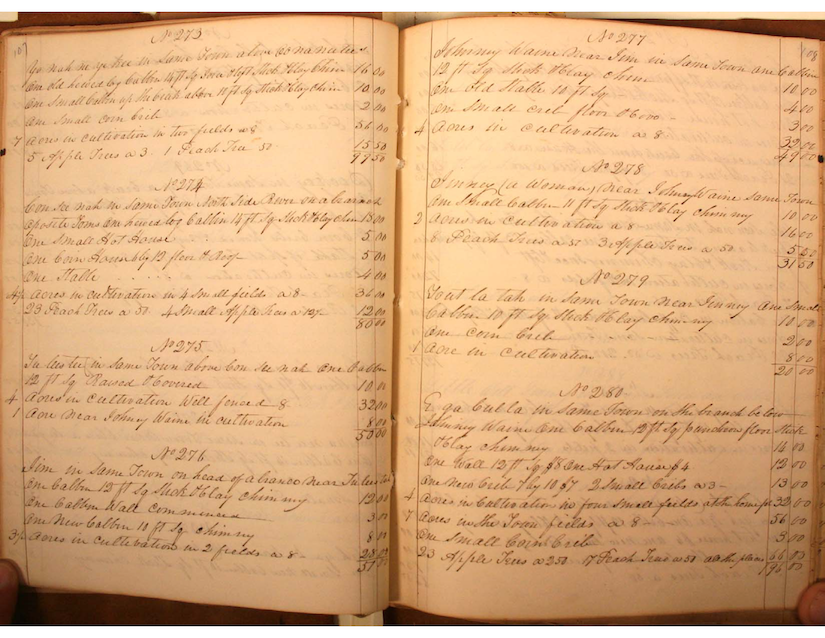 107
No 273
in Same Town above
One old hewed log Cabbin 14 ft Sq floor & loft Stick & Clay Chim 16 00
One Small Cabbin up the creek above 11 ft Sq Stick & Clay Chim 10 00
One Small corn Crib 2 00
7 Acres in cultivation in two fields a 8 56 00
5 Apple Trees a 3 1 Peach Tree 50 15 50
99 50
No 274
Con see nah in Same Town North Side River on a branch
oposite Toms One hewed log Cabbin 14 ft Sq Stick & Clay chim 15 00
One Small Hot House 5 00
One Corn House 6 by 12 floor & Roof 5 00
One Stable 4 00
4½ Acres in cultivation in 4 Small fields a 8 – 36 00
23 Peach Trees a 50 4 Small Apple Trees a 12½ 12 00
80 00
No 275
in Same Town above Con see nah One Cabbin
12 ft Sq Raised & Covered 10 00
4 Acres in cultivation Well fenced 8 32 00
1 Acre Near Johney Waine in cultivation 8 00
50 00
No 276
Jim in Same Town on head of a branch Near
One Cabbin 12 ft Sq Stick & Clay chimny 12 00
One Cabbin Wall commenced 3 00
One New Cabbin 10 ft Sq chimny 8 00
3½ Acres in cultivation in 2 fields a 8 – 28 00
51 00
108
No 277
Johnny Waine Near Jim in same Town one Cabbin
12 ft Sq Stick & Clay chim 10 00
One Old Stable 10 ft Sq 4 00
One Small crib floor & Cover – 3 00
4 Acres in cultivation a 8 32 00
49 00
No 278
Jinney (a Woman) Near Johney Waine same Town
One Small Cabbin 11 ft Sq Stick & Clay chimny 10 00
2 Acres in cultivation a 8 16 00
8 Peach Trees a 50 3 Apple Trees a 50 5 50
31 50
No 279
Tout la tah in Same Town Near Jinney One Small
Cabbin 10 ft Sq Stick & Clay chimny 10 00
One corn Crib 2 00
1 Acre in cultivation 8 00
20 00
No 280
E ga Culla in Same Town on the branch below
Johnny Waine One Cabbin 12 ft Sq puncheon floor Stick
& Clay chimny 14 00
One Wall 12 ft Sq $8 One Hot House $4 12 00
One New Crib 7 by 10 $7 2 Small Cribs a 3 – 13 00
4 Acres in Cultivation in four Small fields at the 32 00
7 Acres in the Town fields a 8 – 56 00
One Small Corn Crib 3 00
23 Apple Trees a 250 17 Peach Trees a 50 all the places 66 00
196 00